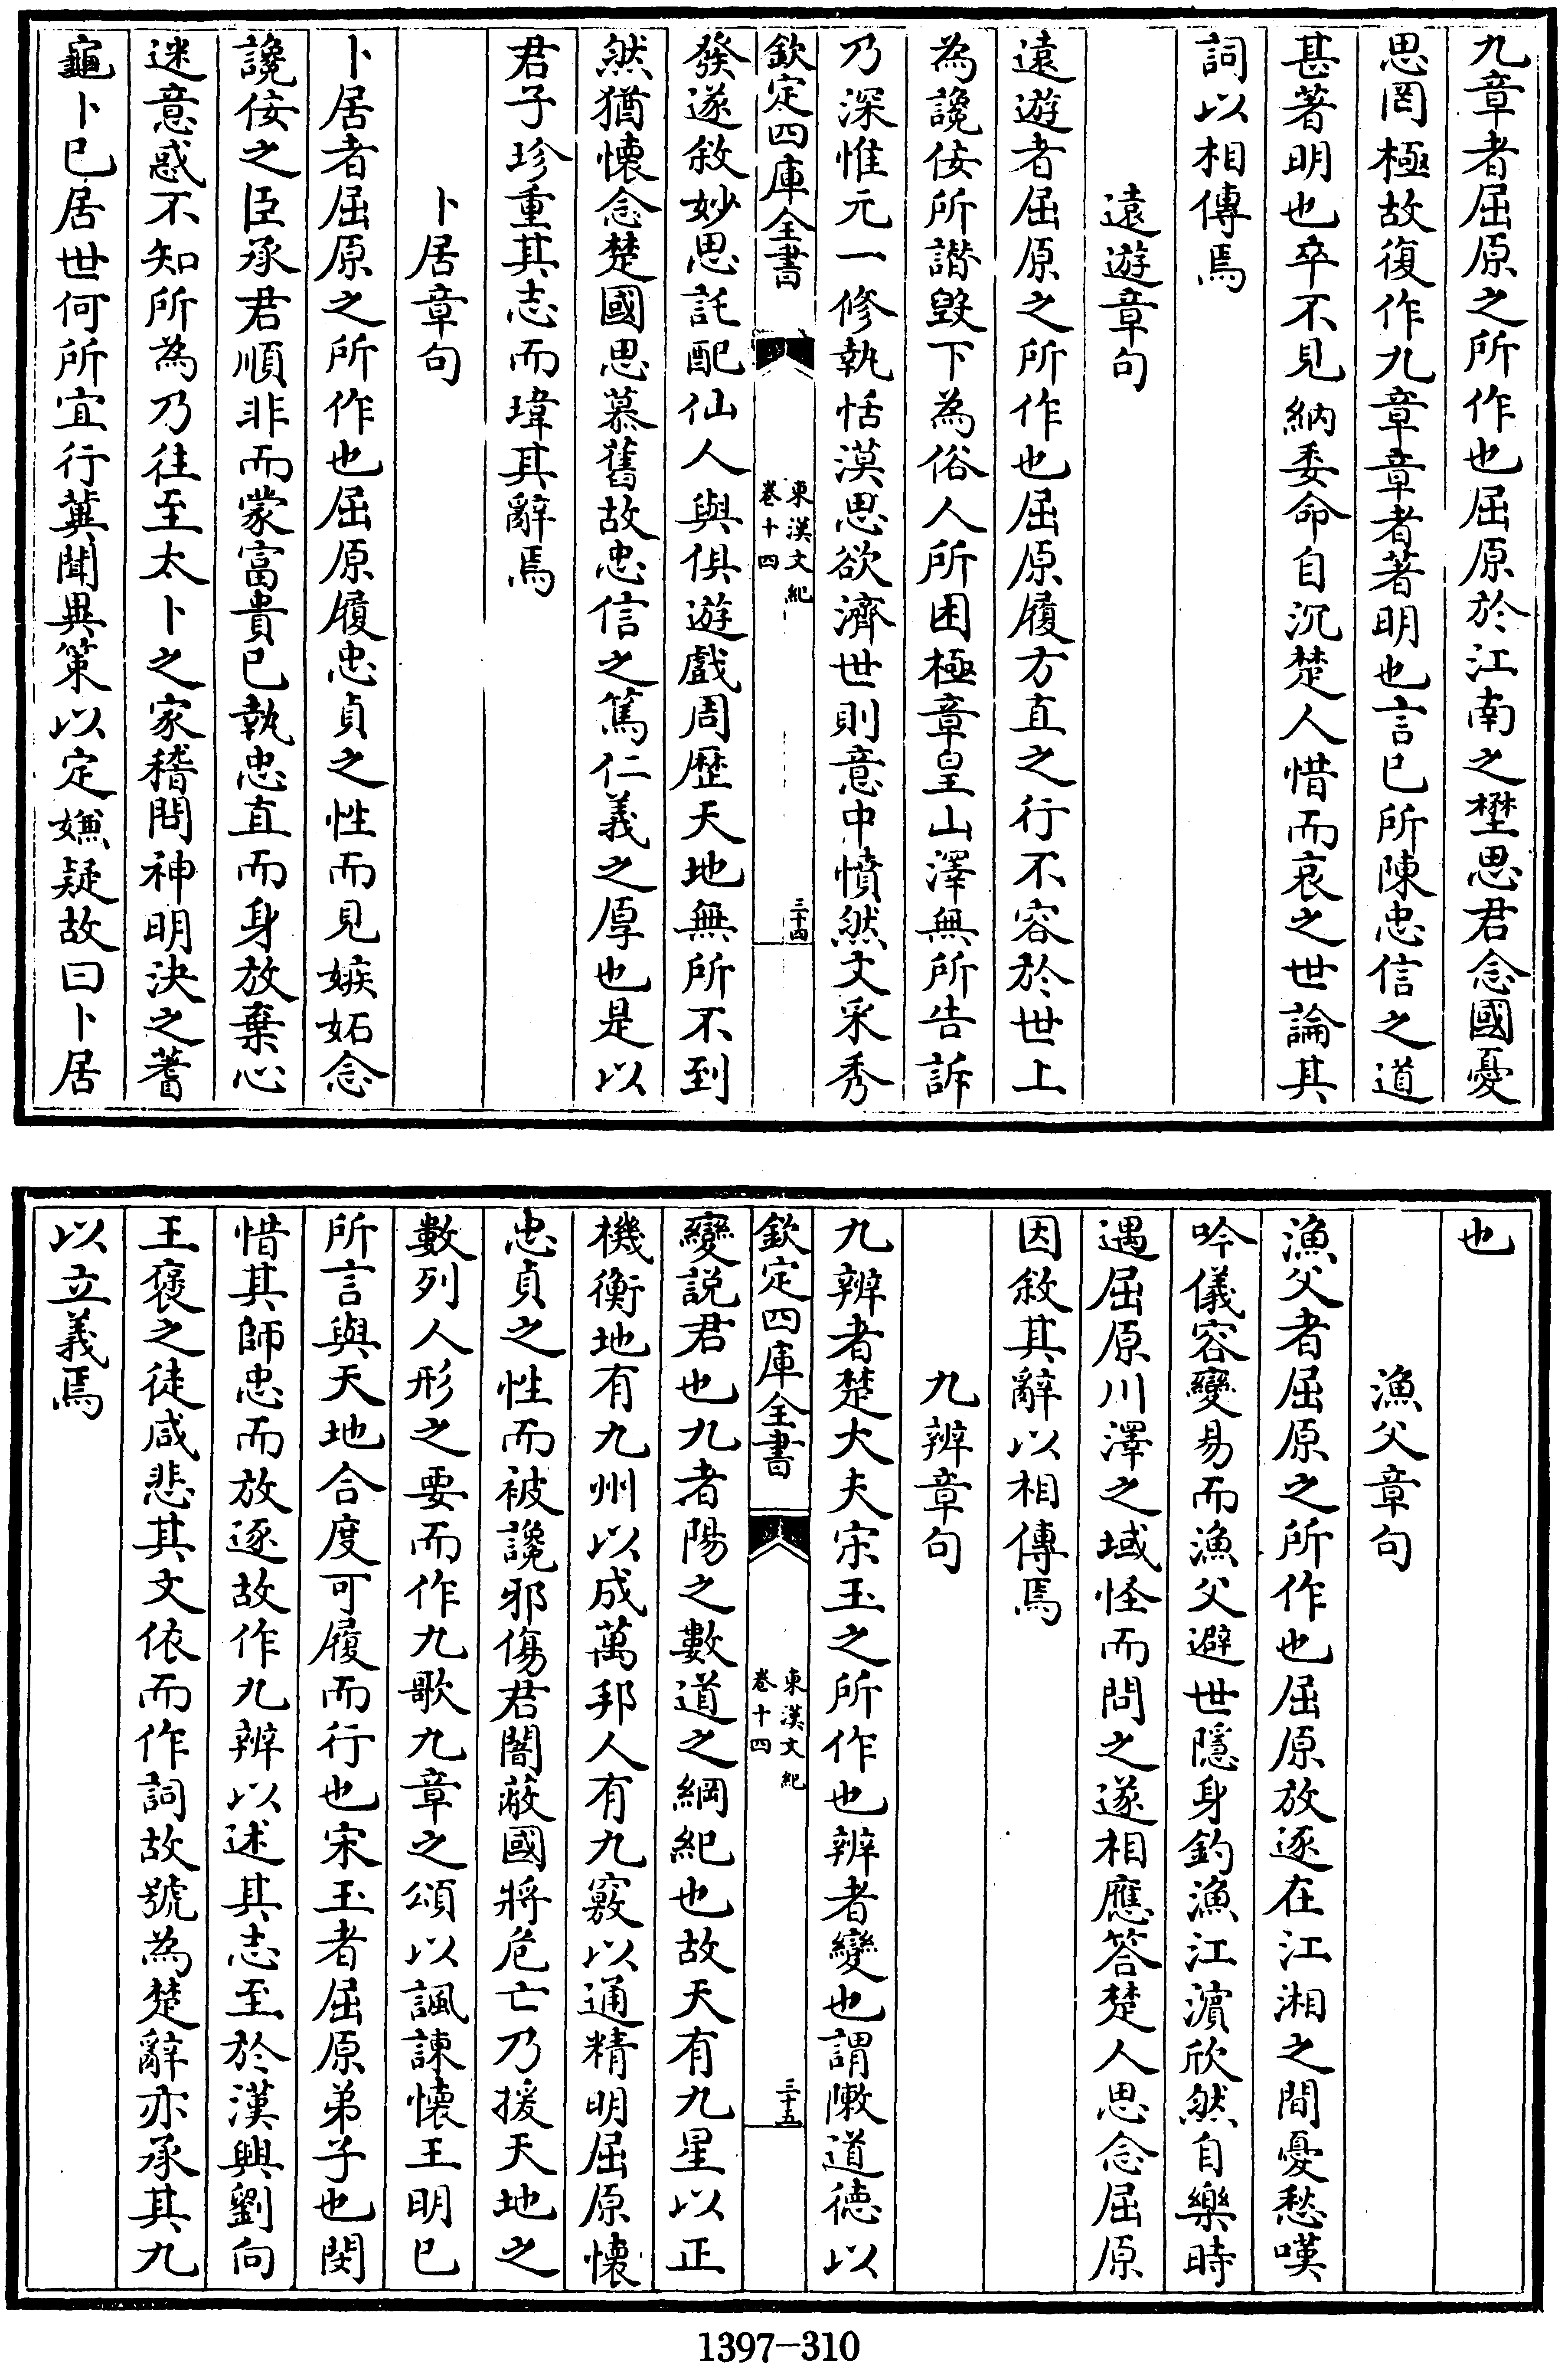 九章者屈原之所作也屈原於江南之壄思君念國憂
思罔極故復作九章章者著明也言已所陳忠信之道
甚著明也卒不見納委命自沉楚人惜而哀之世論其
詞以相傳焉
遠遊章句
遠遊者屈原之所作也屈原履方直之行不容於世上
為讒佞所譛毀下為俗人所困極章皇山澤無所告訴
乃深惟元一修執恬漠思欲濟世則意中憤然文采秀
欽定四庫全書
東漢文紀
卷十四
三十四
發遂敘妙思託配仙人與俱遊戲周歴天地無所不到
然猶懷念楚國思慕舊故忠信之篤仁義之厚也是以
君子珍重其志而瑋其辭焉
卜居章句
卜居者屈原之所作也屈原履忠貞之性而見嫉妬念
讒佞之臣承君順非而蒙富貴已執忠直而身放棄心
迷意惑不知所為乃往至太卜之家稽問神明決之蓍
龜卜已居世何所宜行冀聞異策以定嫌疑故曰卜居
也
漁父章句
漁父者屈原之所作也屈原放逐在江湘之間憂愁嘆
吟儀容變易而漁父避世隱身釣漁江濵欣然自樂時
遇屈原川澤之域怪而問之遂相應答楚人思念屈原
因敘其辭以相傳焉
九辨章句
九辨者楚大夫宋玉之所作也辨者變也謂敶道德以
欽定四庫全書
東漢文紀
卷十四
三十五
變説君也九者陽之數道之綱紀也故天有九星以正
機衡地有九州以成萬邦人有九竅以通精明屈原懷
忠貞之性而被讒邪傷君闇蔽國將危亡乃援天地之
數列人形之要而作九歌九章之頌以諷諫懷王明已
所言與天地合度可履而行也宋玉者屈原弟子也閔
惜其師忠而放逐故作九辨以述其志至於漢興劉向
王褒之徒咸悲其文依而作詞故號為楚辭亦承其九
以立義焉
1397-310